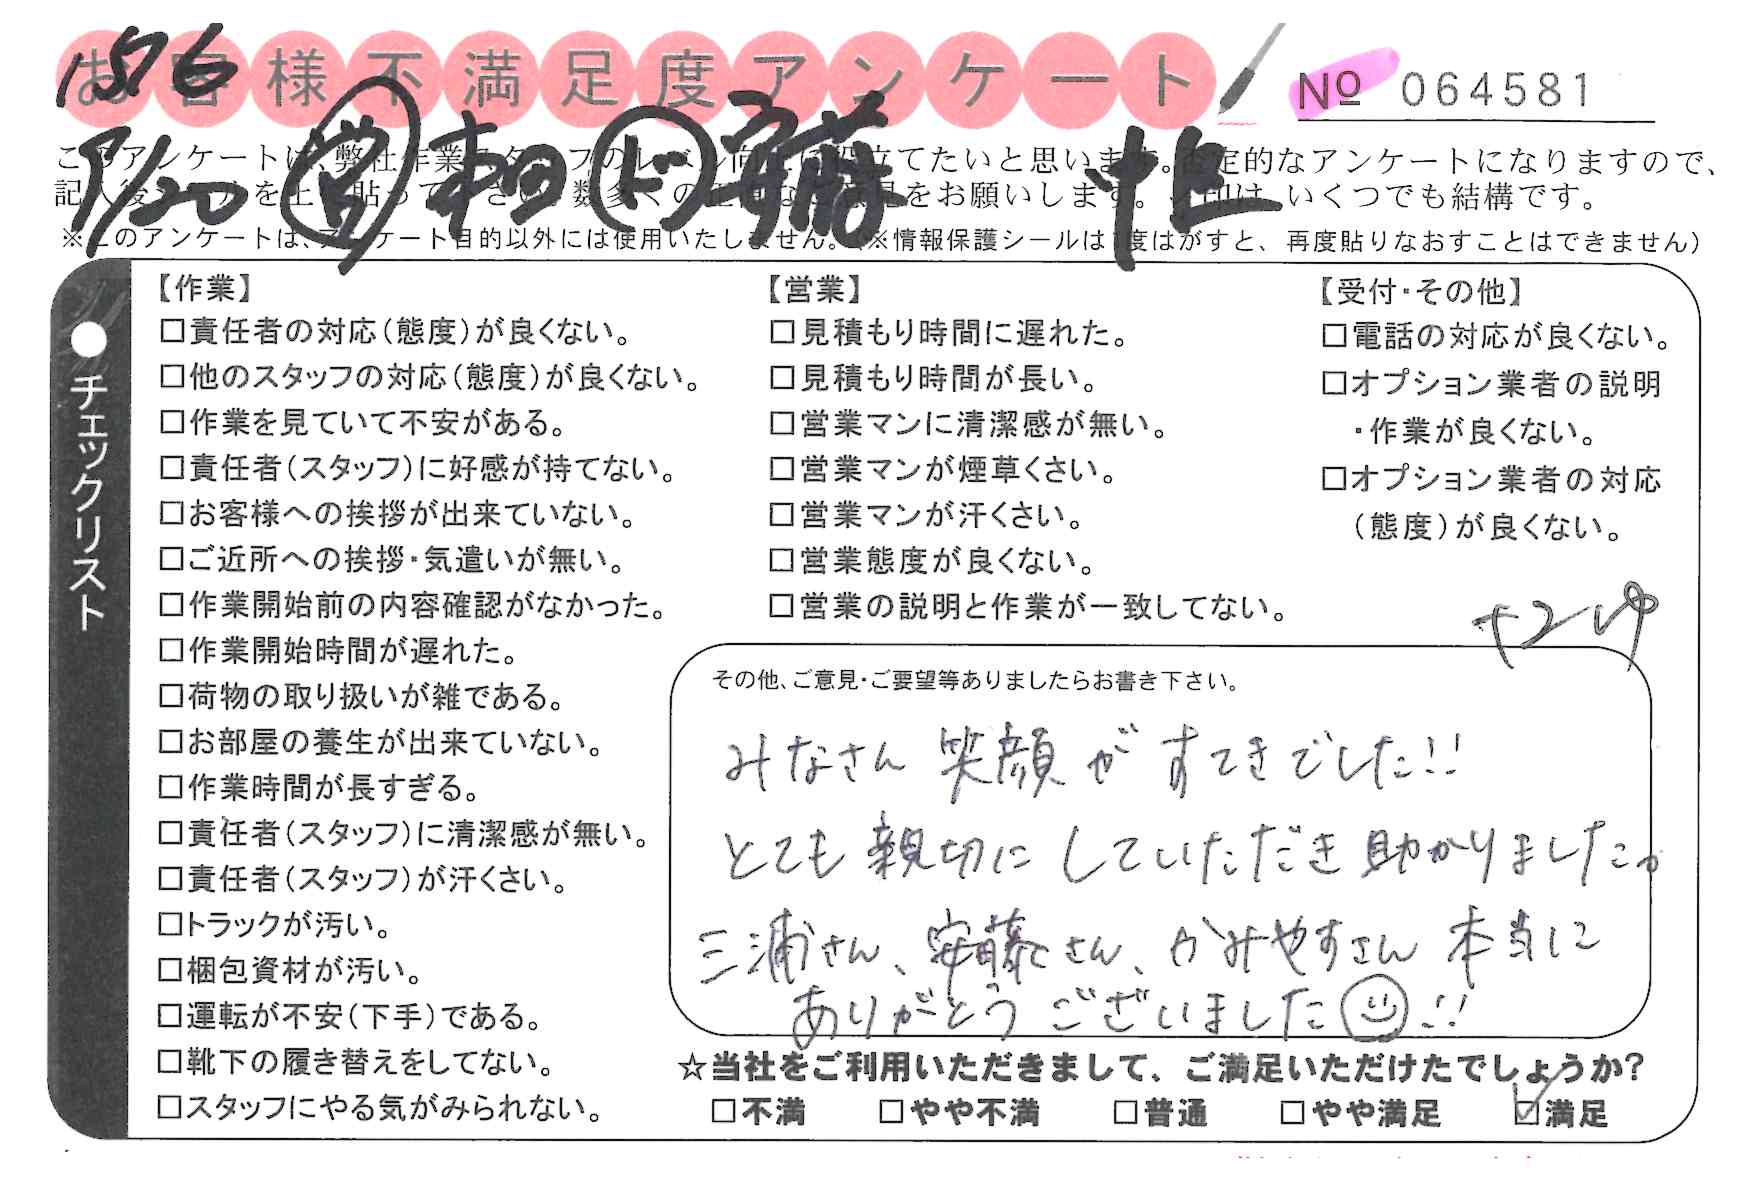 お客様不満足度アンケート
1576
№ 064581
このアンケートは、弊社作業スタッフのレベル向上に役立てたいと思います。否定的なアンケートになりますので、
記入後シールを上に貼って下さい。数多くの正直なご意見をお願いします。レ印は、いくつでも結構です。
※このアンケートは、アンケート目的以外には使用いたしません。（※情報保護シールは1度はがすと、再度貼りなおすことはできません）
営 本田 ド 安藤
●チェックリスト
【作業】
□責任者の対応（態度）が良くない。
□他のスタッフの対応（態度）が良くない。
□作業を見ていて不安がある。
□責任者（スタッフ）に好感が持てない。
□お客様への挨拶が出来ていない。
□ご近所への挨拶・気遣いが無い。
□作業開始前の内容確認がなかった。
□作業開始時間が遅れた。
□荷物の取り扱いが雑である。
□お部屋の養生が出来ていない。
□作業時間が長すぎる。
□責任者（スタッフ）に清潔感が無い。
□責任者（スタッフ）が汗くさい。
□トラックが汚い。
□梱包資材が汚い。
□運転が不安（下手）である。
□靴下の履き替えをしてない。
□スタッフにやる気がみられない。
【営業】
□見積もり時間に遅れた。
□見積もり時間が長い。
□営業マンに清潔感が無い。
□営業マンが煙草くさい。
□営業マンが汗くさい。
□営業態度が良くない。
□営業の説明と作業が一致してない。
【受付・その他】
□電話の対応が良くない。
□オプション業者の説明
・作業が良くない。
□オプション業者の対応
（態度）が良くない。
その他、ご意見・ご要望等ありましたらお書き下さい。
みなさん 笑顔が すてきでした!!
とても親切にしていただき助かりました。
三浦さん、安藤さん、かみやすさん 本当に
ありがとうございました☺!!
☆当社をご利用いただきまして、ご満足いただけたでしょうか?
□不満 □やや不満 □普通 □やや満足 ☑満足